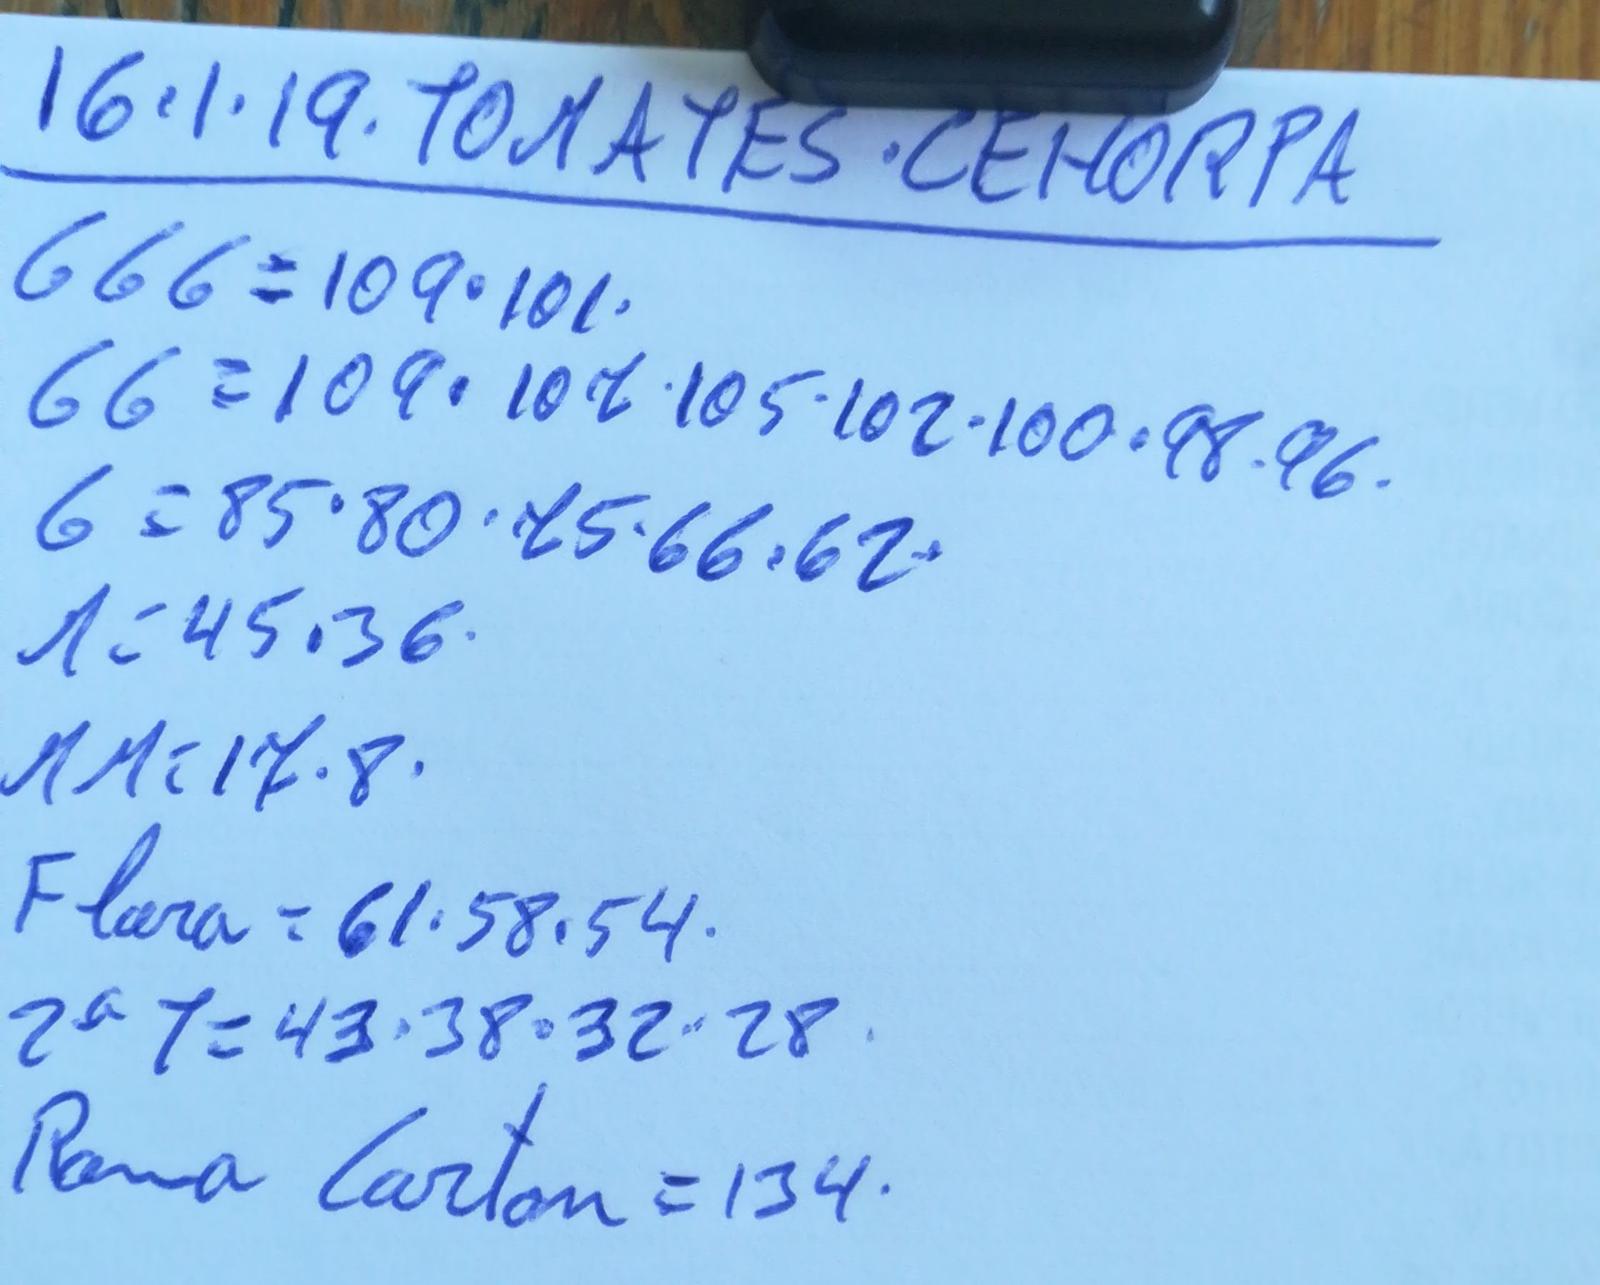 16.1.19. TOMATES. CEHORPA
GGG = 109. 101.
GG = 109. 107. 105. 102. 100. 98. 96.
G = 85. 80. 75. 66. 62.
M = 45. 36.
MM = 17. 8.
Flora = 61. 58. 54.
2ª T = 43. 38. 32. 28.
Rama Carton = 134.